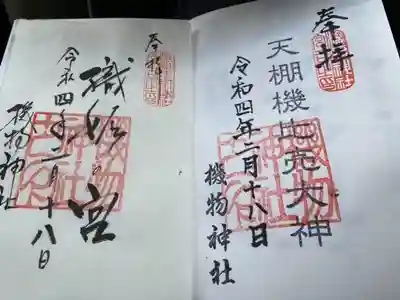 奉拝
天棚機比売大神
令和四年二月十八日
機物神社
奉拝
織姫宮
令和四年二月十八日
機物神社